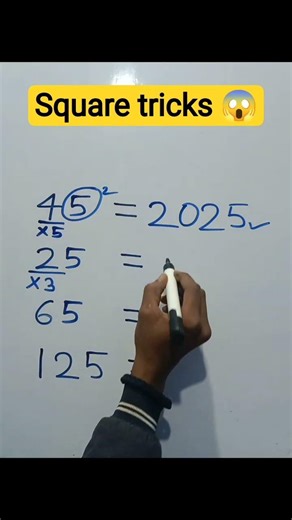 Square tricks 😱
45² = 2025✓
×5
25 =
×3
65 =
125 =